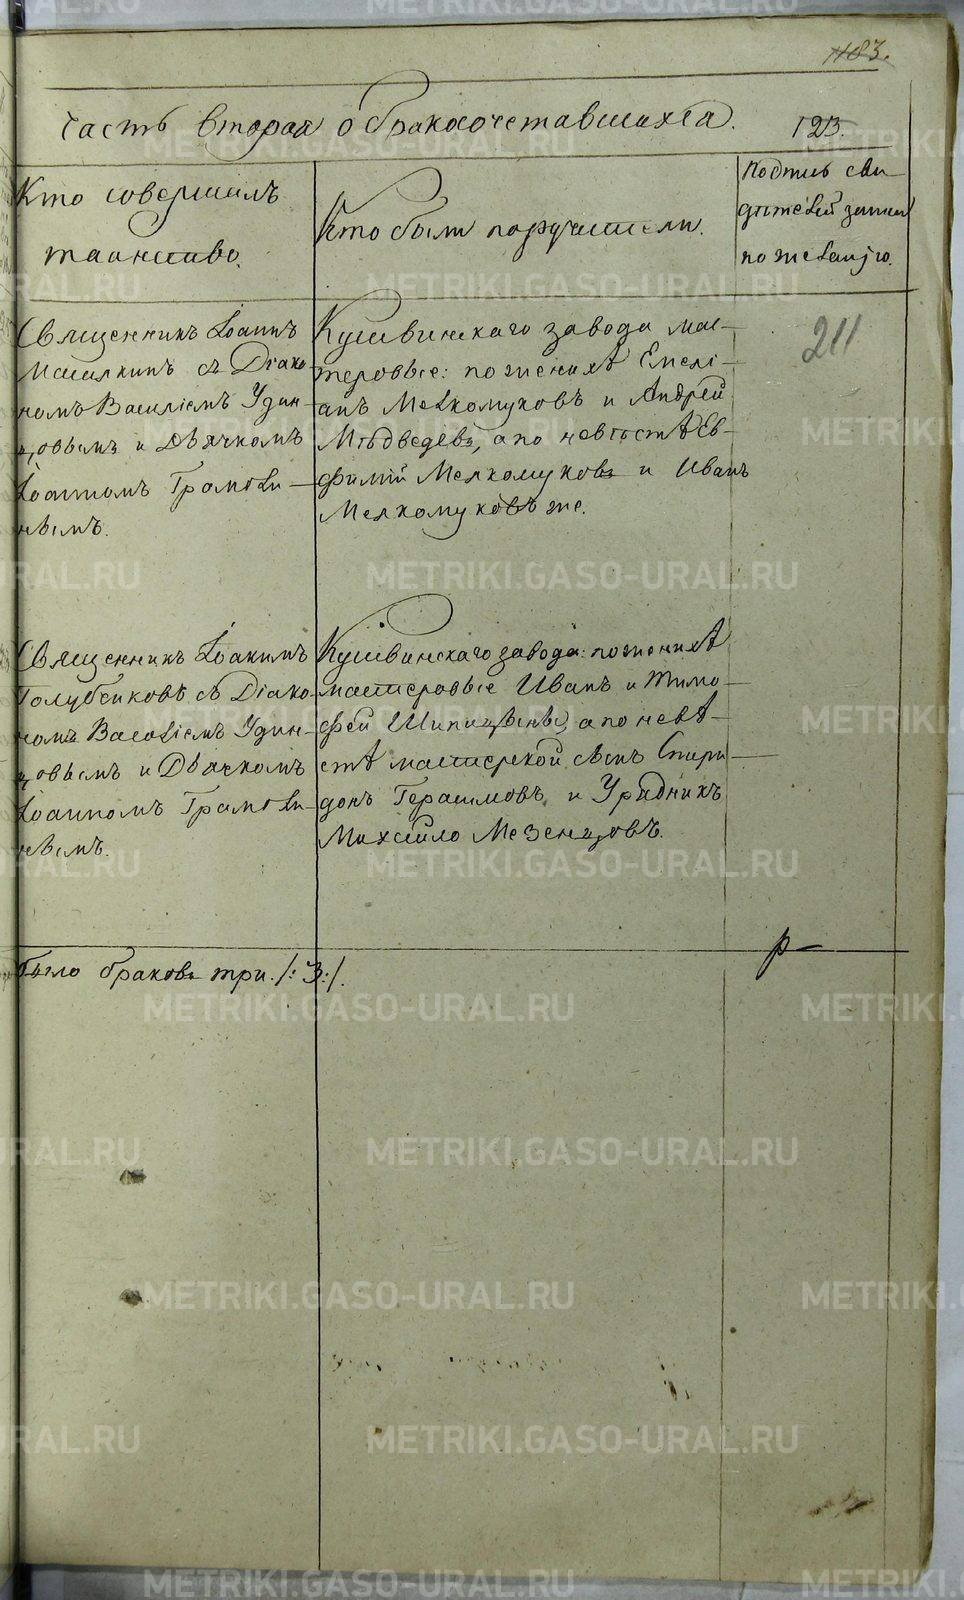 1183.
Часть вторая о бракосочетавшихся. 123.
Кто совершалъ
таинство.
Кто были поручители.
Подпись сви-
дѣтелей записи
по желанію.
Священникъ Іоаннъ
съ Діако-
номъ Василіемъ Удин-
цовымъ и Дьячкомъ
Іоанномъ Грамоли-
нымъ.
Кушвинскаго завода мас-
теровые: по женихѣ Емелі-
анъ Мелкомуковъ и Андрей
Мѣдведевъ, а по невѣстѣ Ев-
фимій Мелкомуковъ и Иванъ
Мелкомуковъ же.
211
Священникъ Іоакимъ
Голубчиковъ съ Діако-
номъ Василіемъ Удин-
цовымъ и Дьячкомъ
Іоанномъ Грамоли-
нымъ.
Кушвинскаго завода: по женихѣ
мастеровые Иванъ и Тимо-
фей Шипицыны, а по невѣ-
стѣ мастерской сынъ Спири-
донъ Герасимовъ и Урядникъ
Михайло Мезенцовъ.
Было браковъ три /:3:/.
METRIKI.GASO-URAL.RU